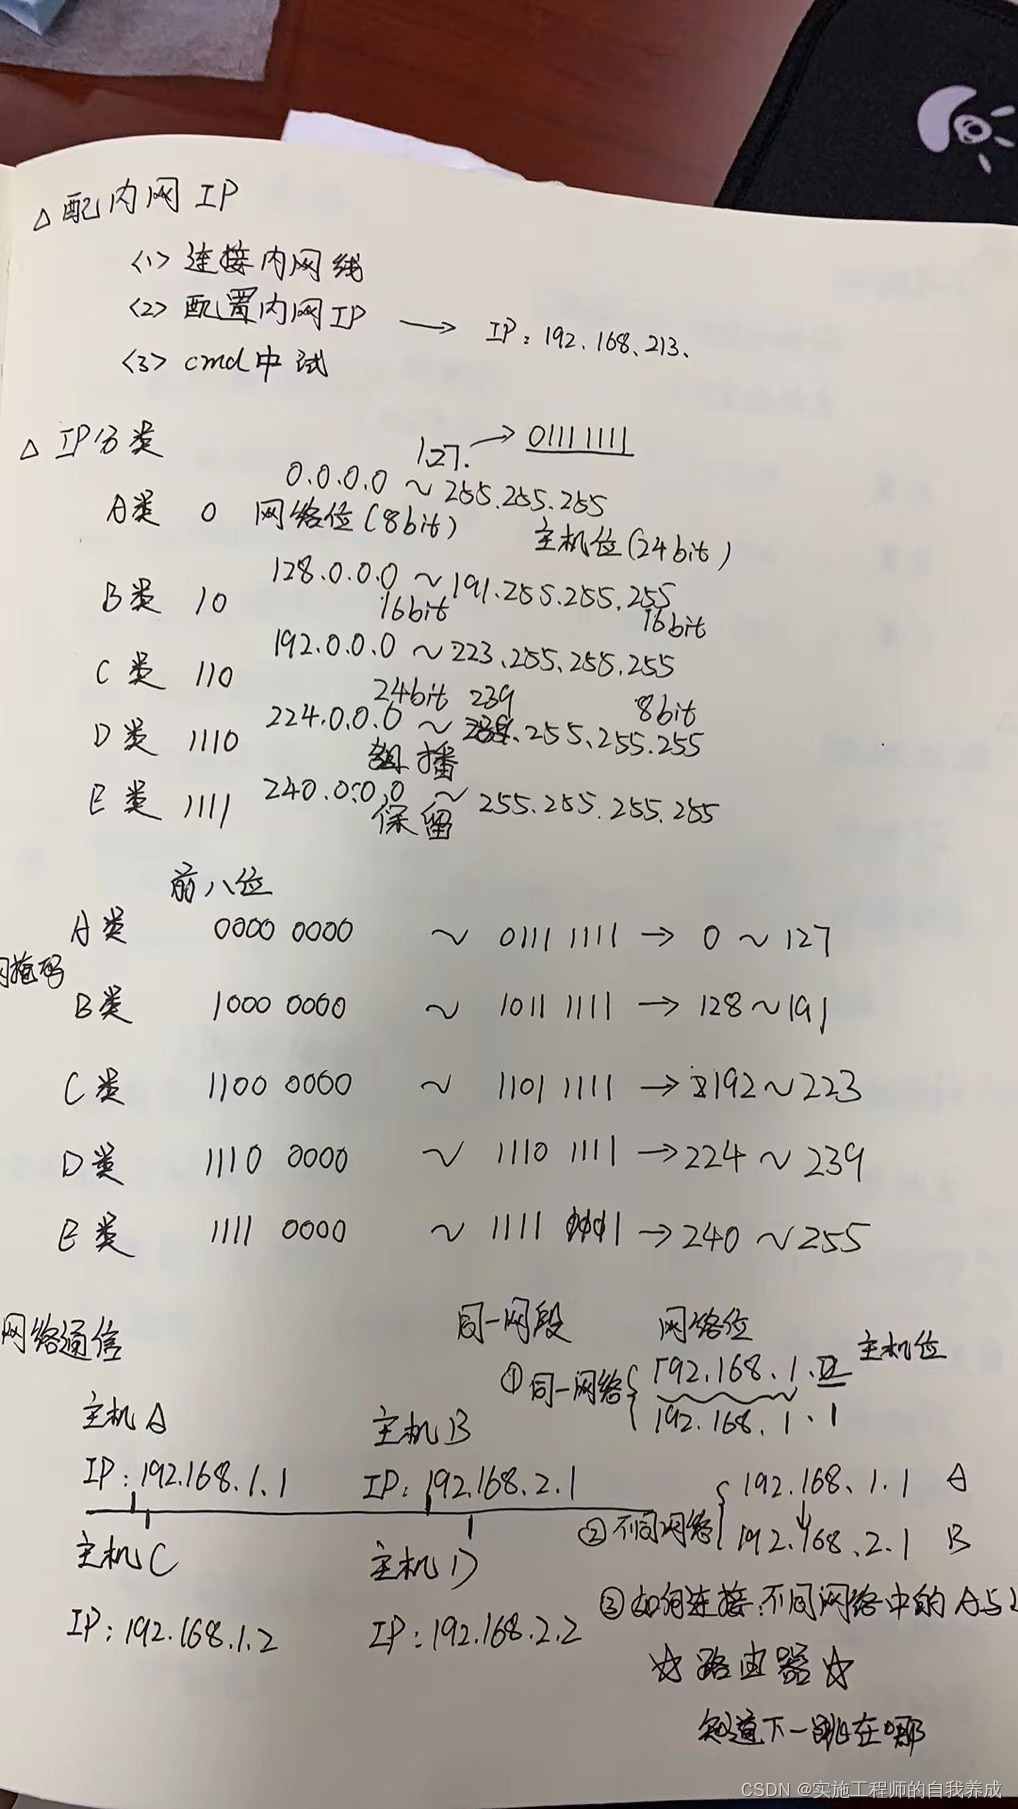 △ 配内网 IP
<1> 连接内网线
<2> 配置内网IP → IP: 192.168.213.
<3> cmd中试
△ IP分类
127. → 01111111
0.0.0.0 ~ 255.255.255
A类 0 网络位(8bit) 主机位(24bit)
128.0.0.0 ~ 191.255.255.255
B类 10 16bit 16bit
192.0.0.0 ~ 223.255.255.255
C类 110 24bit 8bit
224.0.0.0 ~ 239.255.255.255
D类 1110 组播
E类 1111 240.0.0.0 ~ 255.255.255.255
保留
前八位
A类 0000 0000 ~ 0111 1111 → 0 ~ 127
网掩码
B类 1000 0000 ~ 1011 1111 → 128 ~ 191
C类 1100 0000 ~ 1101 1111 → 192 ~ 223
D类 1110 0000 ~ 1110 1111 → 224 ~ 239
E类 1111 0000 ~ 1111 1111 → 240 ~ 255
网络通信
同一网段 网络位 主机位
①同一网络 { 192.168.1.
192.168.1.1
主机A 主机B
IP: 192.168.1.1 IP: 192.168.2.1
②不同网络 { 192.168.1.1 A
192.168.2.1 B
主机C 主机D
IP: 192.168.1.2 IP: 192.168.2.2
③如何连接不同网络中的A与
☆路由器☆
知道下一跳在哪
CSDN @实施工程师的自我养成